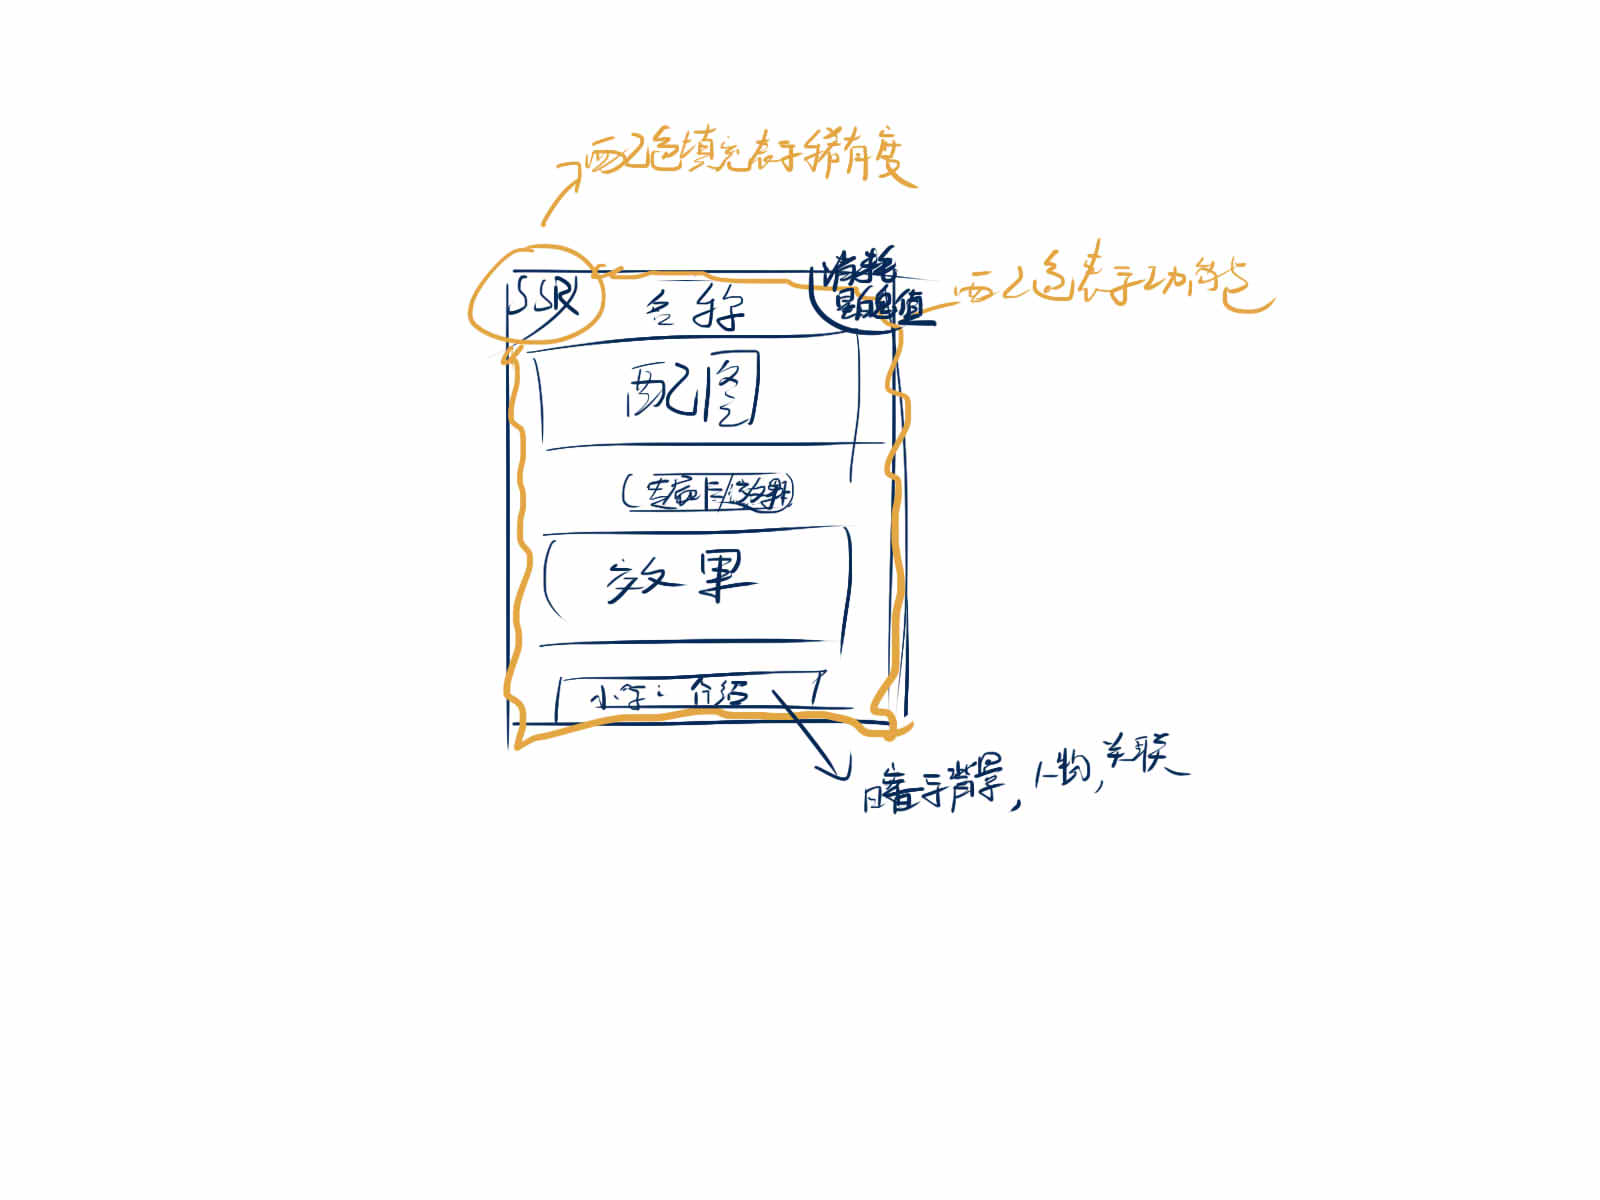 配色填充表示稀有度
SSR
名称
消耗
显眼值
配色表示功能
配图
(专属卡/效果)
效果
小字：介绍
暗示背景，人物，关联